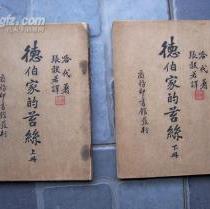 哈代著
張穀若譯
德伯家的苔絲
上冊
商務印書館發行
哈代著
張穀若譯
德伯家的苔絲
下冊
商務印書館發行